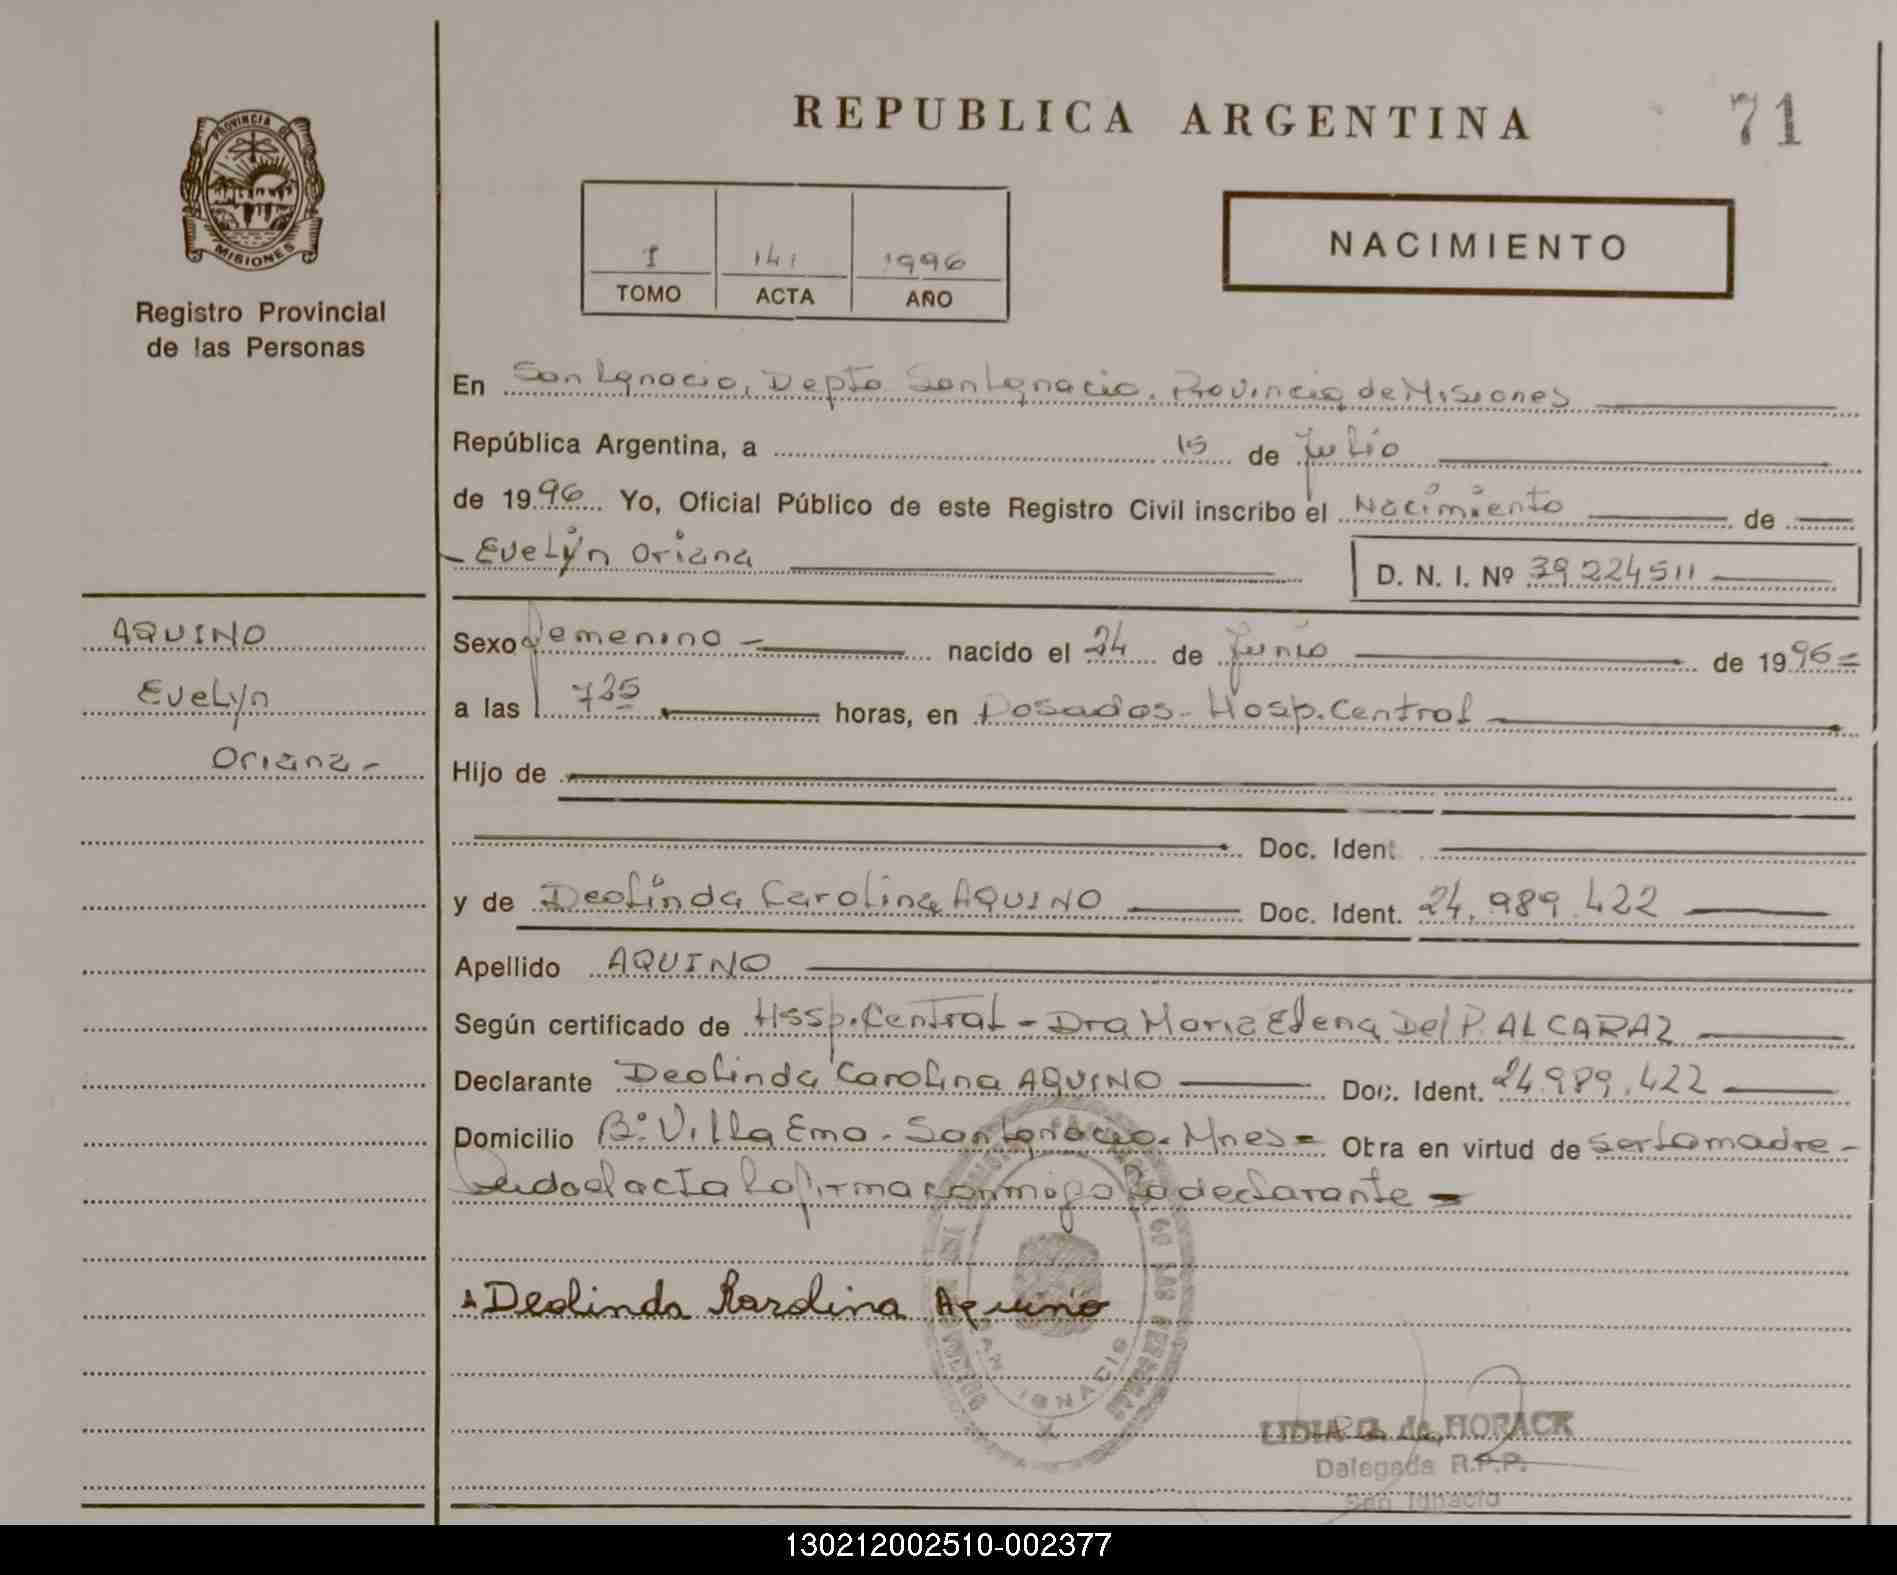 REPUBLICA ARGENTINA
71
PROVINCIA DE
MISIONES
Registro Provincial
de las Personas
I 141 1996
TOMO ACTA AÑO
NACIMIENTO
En San Ignacio, Depto San Ignacio. Provincia de Misiones
República Argentina, a 15 de Julio
de 1996 Yo, Oficial Público de este Registro Civil inscribo el Nacimiento de
Evelyn Oriana D. N. I. Nº 39.224511
AQUINO
Evelyn
Oriana-
Sexo femenino nacido el 24 de Junio de 1996=
a las 7 25 horas, en Posadas- Hosp. Central
Hijo de
Doc. Ident.
y de Deolinda Carolina AQUINO Doc. Ident. 24.989.422
Apellido AQUINO
Según certificado de Hosp. Central - Dra Maria Elena Del P. ALCARAZ
Declarante Deolinda Carolina AQUINO Doc. Ident. 24.989.422
Domicilio Bº. Villa Ema. San Ignacio. Mnes= Obra en virtud de ser la madre-
Leida el acta la firma conmigo la declarante-
Deolinda Karolina Aquino
DE LAS PERSONAS
SAN IGNACIO
LIDIA G. de HORACK
Delegada R.P.P.
San Ignacio
130212002510-002377